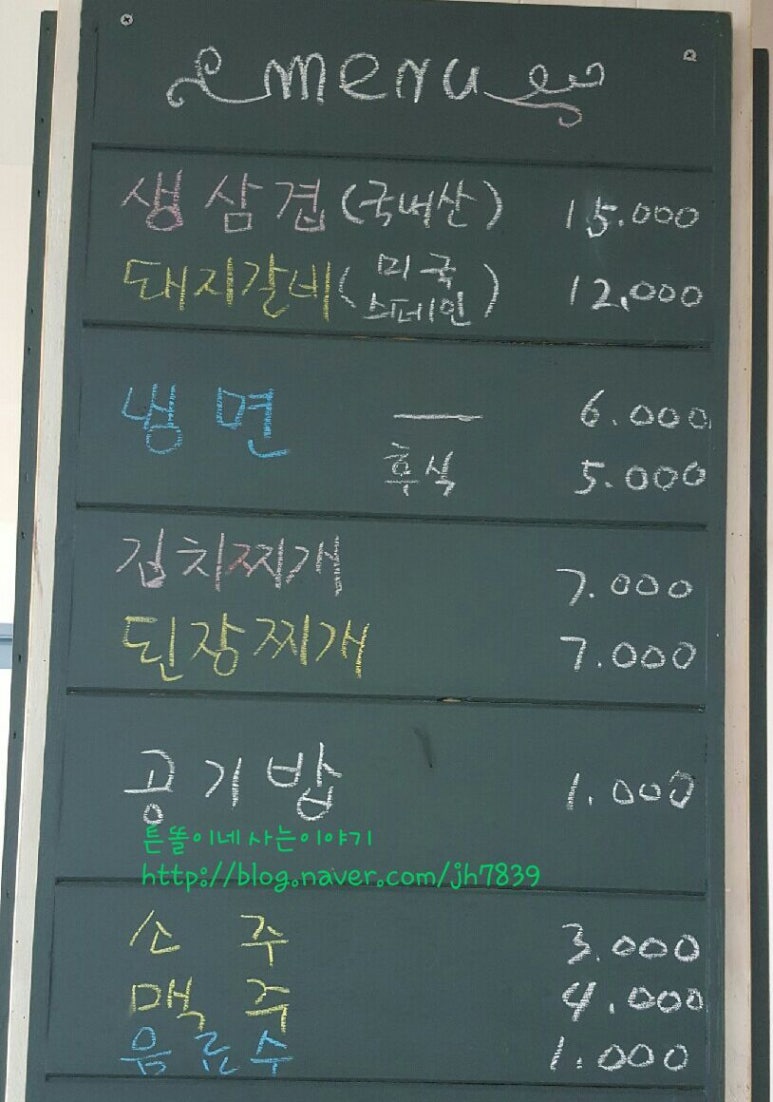 menu
생삼겹(국내산) 15.000
돼지갈비(미국 스페인) 12,000
냉면 — 6.000
후식 5.000
김치찌개 7.000
된장찌개 7.000
공기밥 1.000
튼똘이네 사는이야기
http://blog.naver.com/jh7839
소주 3.000
맥주 4.000
음료수 1.000